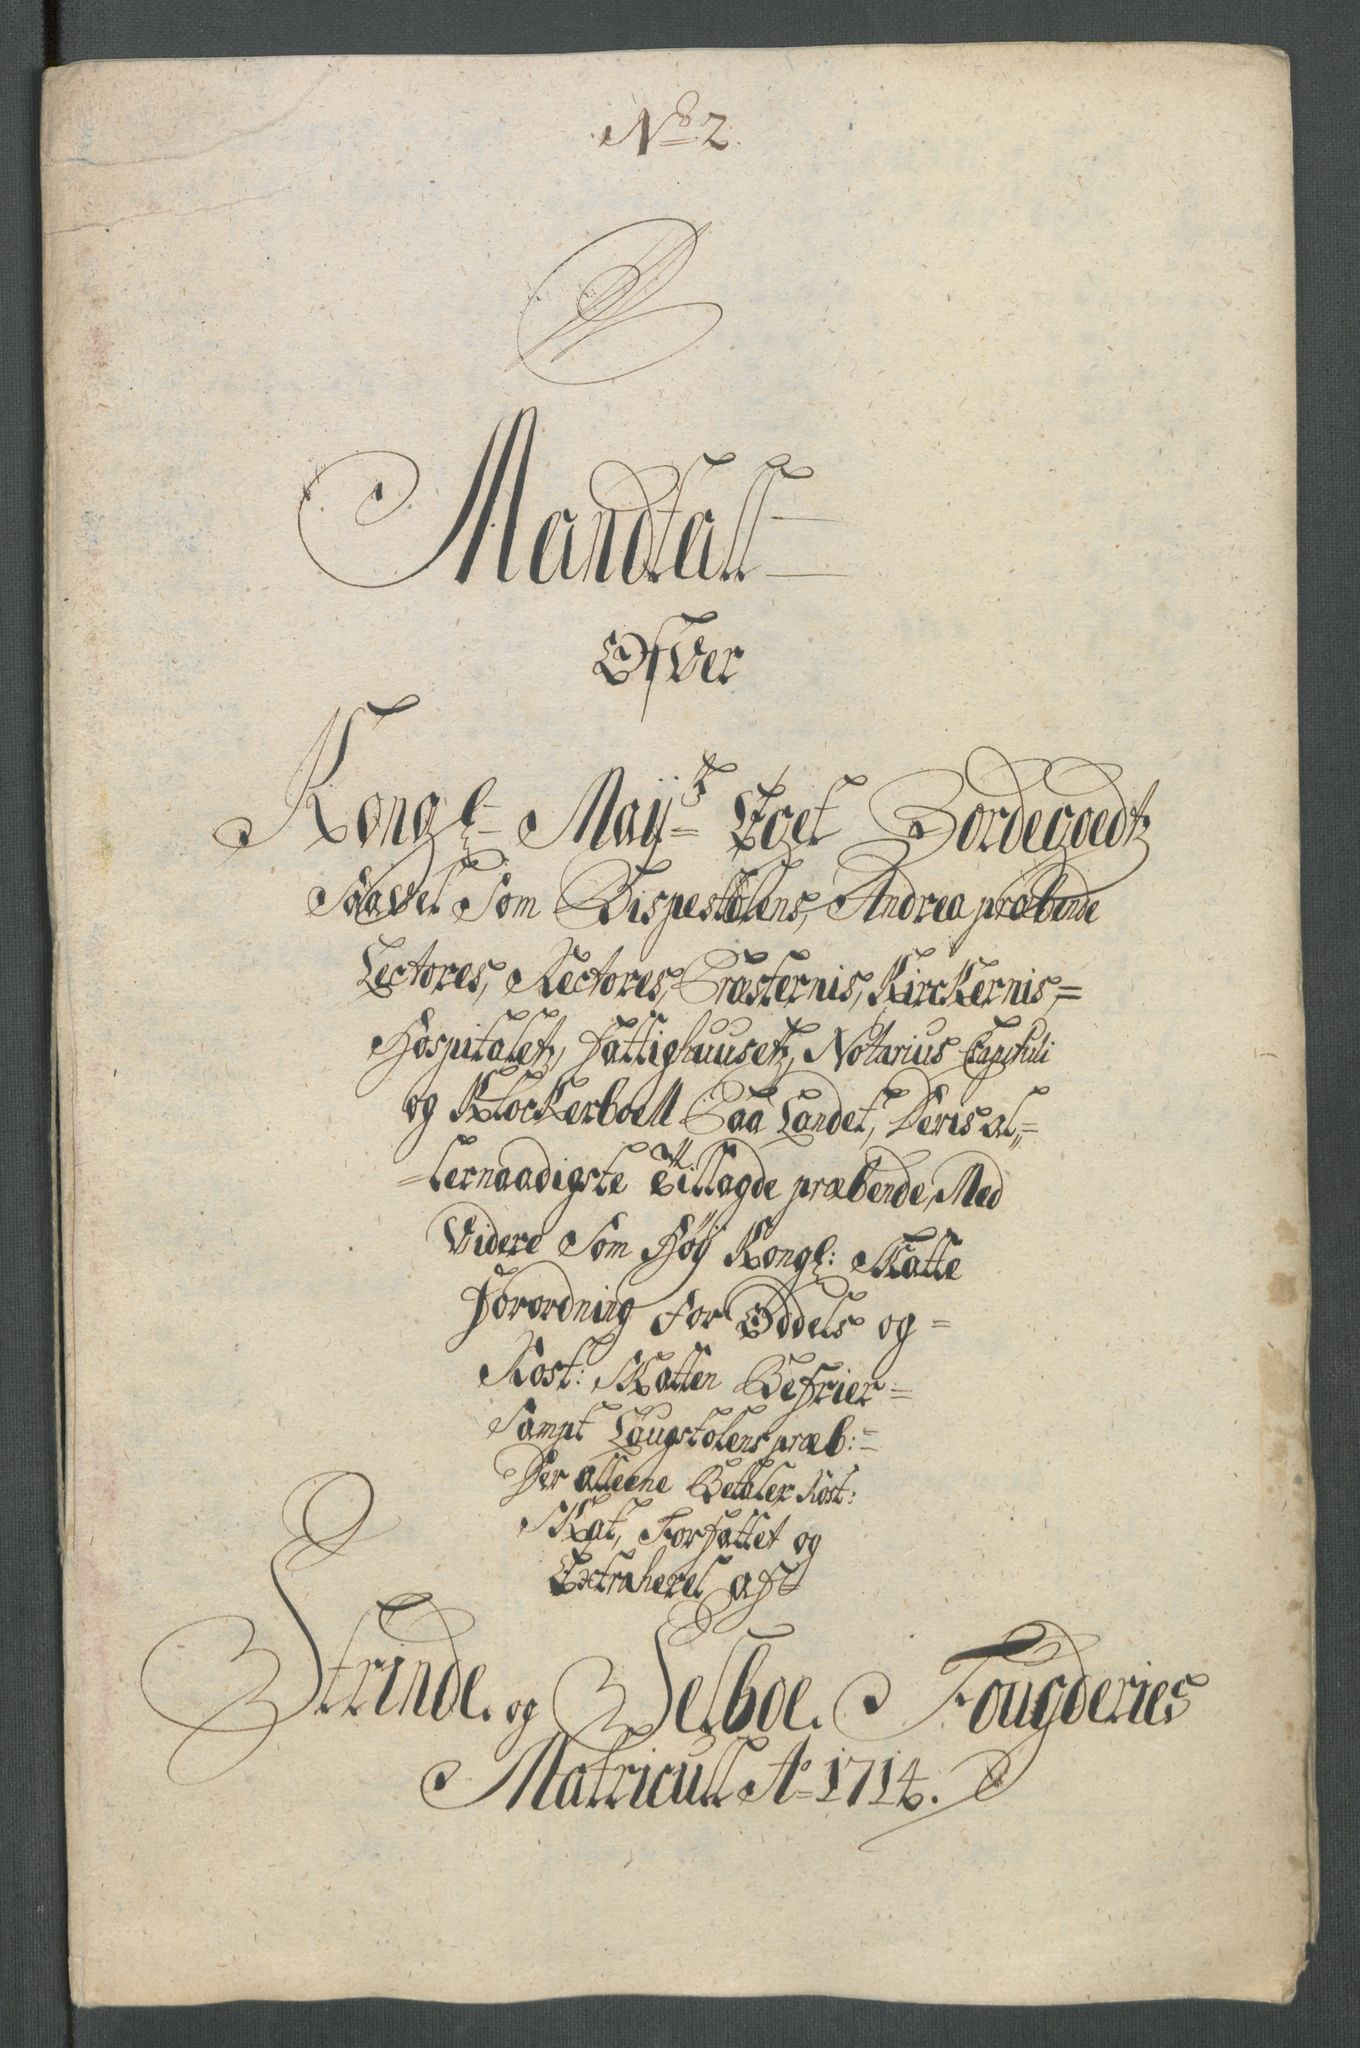 No 2.
Mandtall
Ofver
Kongl: Mayts Eget Jordegoedtz
Saavel Som Bispestolens, Andrea præbende
Lectores, Rectores, Præsternis, Kirckernis,
Hospitalet, Fattighuusetz, Notarius Capituli
og Klockerboell Paa Landet, Deris al,,
lernaadigste tillagde præbende, Med
Videre Som Høÿ Kongl: Skatte
Forordning for Oddels og
Rost: Skatten Befrier
Sampt Laugstolens præb:
Der alleene Betaler Rost:
Skat, Forfattet og
Extraheret af
Strinde og Selboe Fougderies
Matricull Ao 1714.